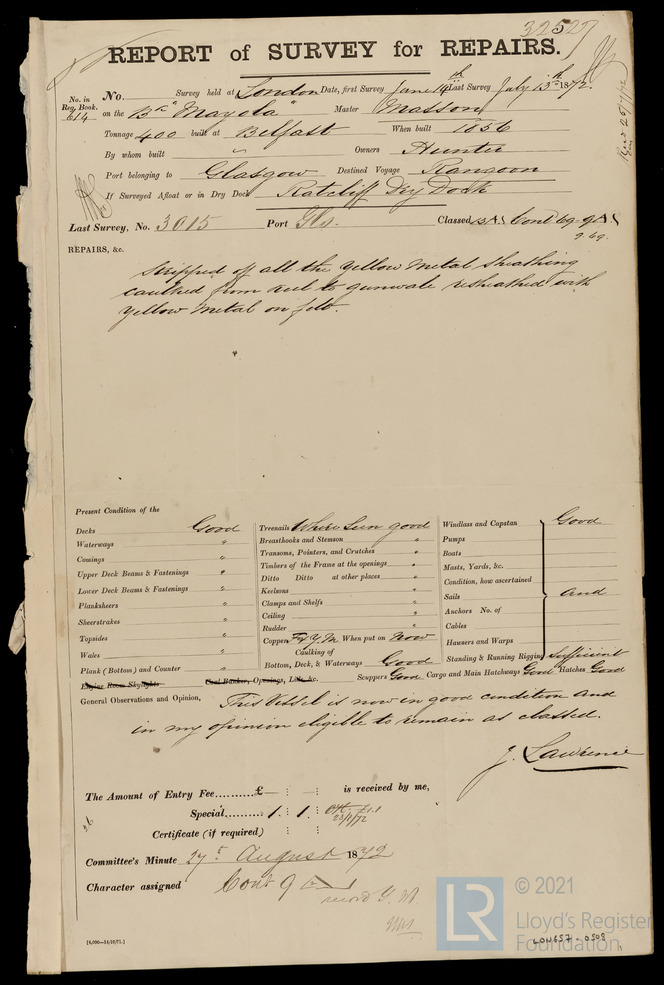 32527
REPORT of SURVEY for REPAIRS.
No. in Reg. Book. 614
No. Survey held at London Date, first Survey June 14th Last Survey July 13th 1872.
on the Bk "Mayola" Master Masson
Tonnage 400 built at Belfast When built 1856
By whom built " Owners Hunter
Port belonging to Glasgow Destined Voyage Rangoon
If Surveyed Afloat or in Dry Dock Ratcliff Dry Dock
Last Survey, No. 3015 Port Gls. Classed Cont 69-9
9.69.
REPAIRS, &c.
Stripped off all the Yellow Metal Sheathing
caulked from keel to gunwale resheathed with
Yellow Metal on felt.
Present Condition of the
Decks Good
Waterways "
Comings "
Upper Deck Beams & Fastenings "
Lower Deck Beams & Fastenings "
Planksheers "
Sheerstrakes "
Topsides "
Wales "
Plank (Bottom) and Counter "
Engine Room Skylights Coal Bunker, Openings, Lids, &c.
Treenails Where seen good
Breasthooks and Stemson "
Transoms, Pointers, and Crutches "
Timbers of the Frame at the openings "
Ditto Ditto at other places "
Keelsons "
Clamps and Shelfs "
Ceiling "
Rudder "
Copper F & Y.M When put on Now
Caulking of
Bottom, Deck, & Waterways Good
Windlass and Capstan Good
Pumps
Boats
Masts, Yards, &c.
Condition, how ascertained
Sails and
Anchors No. of
Cables
Hawsers and Warps
Standing & Running Rigging Sufficient
Scuppers Good Cargo and Main Hatchways Good Hatches Good
General Observations and Opinion, This Vessel is now in good condition and
in my opinion eligible to remain as classed.
J. Lawrence
The Amount of Entry Fee......... £ : : is received by me,
Special......... 1 : 1 :
23/8/72
Certificate (if required) : :
Committee's Minute 27th August 1872
Character assigned Cont 9
record Y. M
[6,000—14/10/71.]
LR © 2021
Lloyd's Register
Foundation
LON657-0508